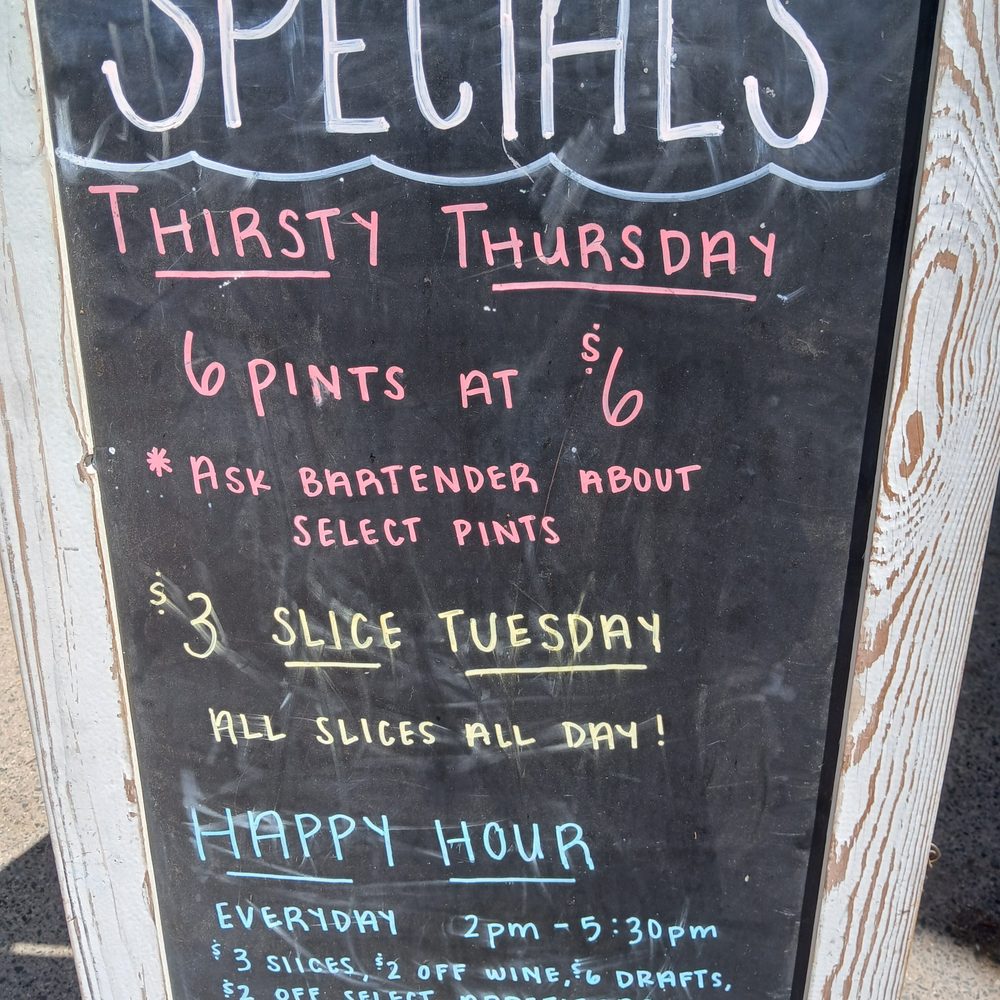 SPECIALS
THIRSTY THURSDAY
6 PINTS AT $6
* ASK BARTENDER ABOUT
SELECT PINTS
$3 SLICE TUESDAY
ALL SLICES ALL DAY!
HAPPY HOUR
EVERYDAY 2pm - 5:30pm
$3 SLICES, $2 OFF WINE, $6 DRAFTS,
$2 OFF SELECT